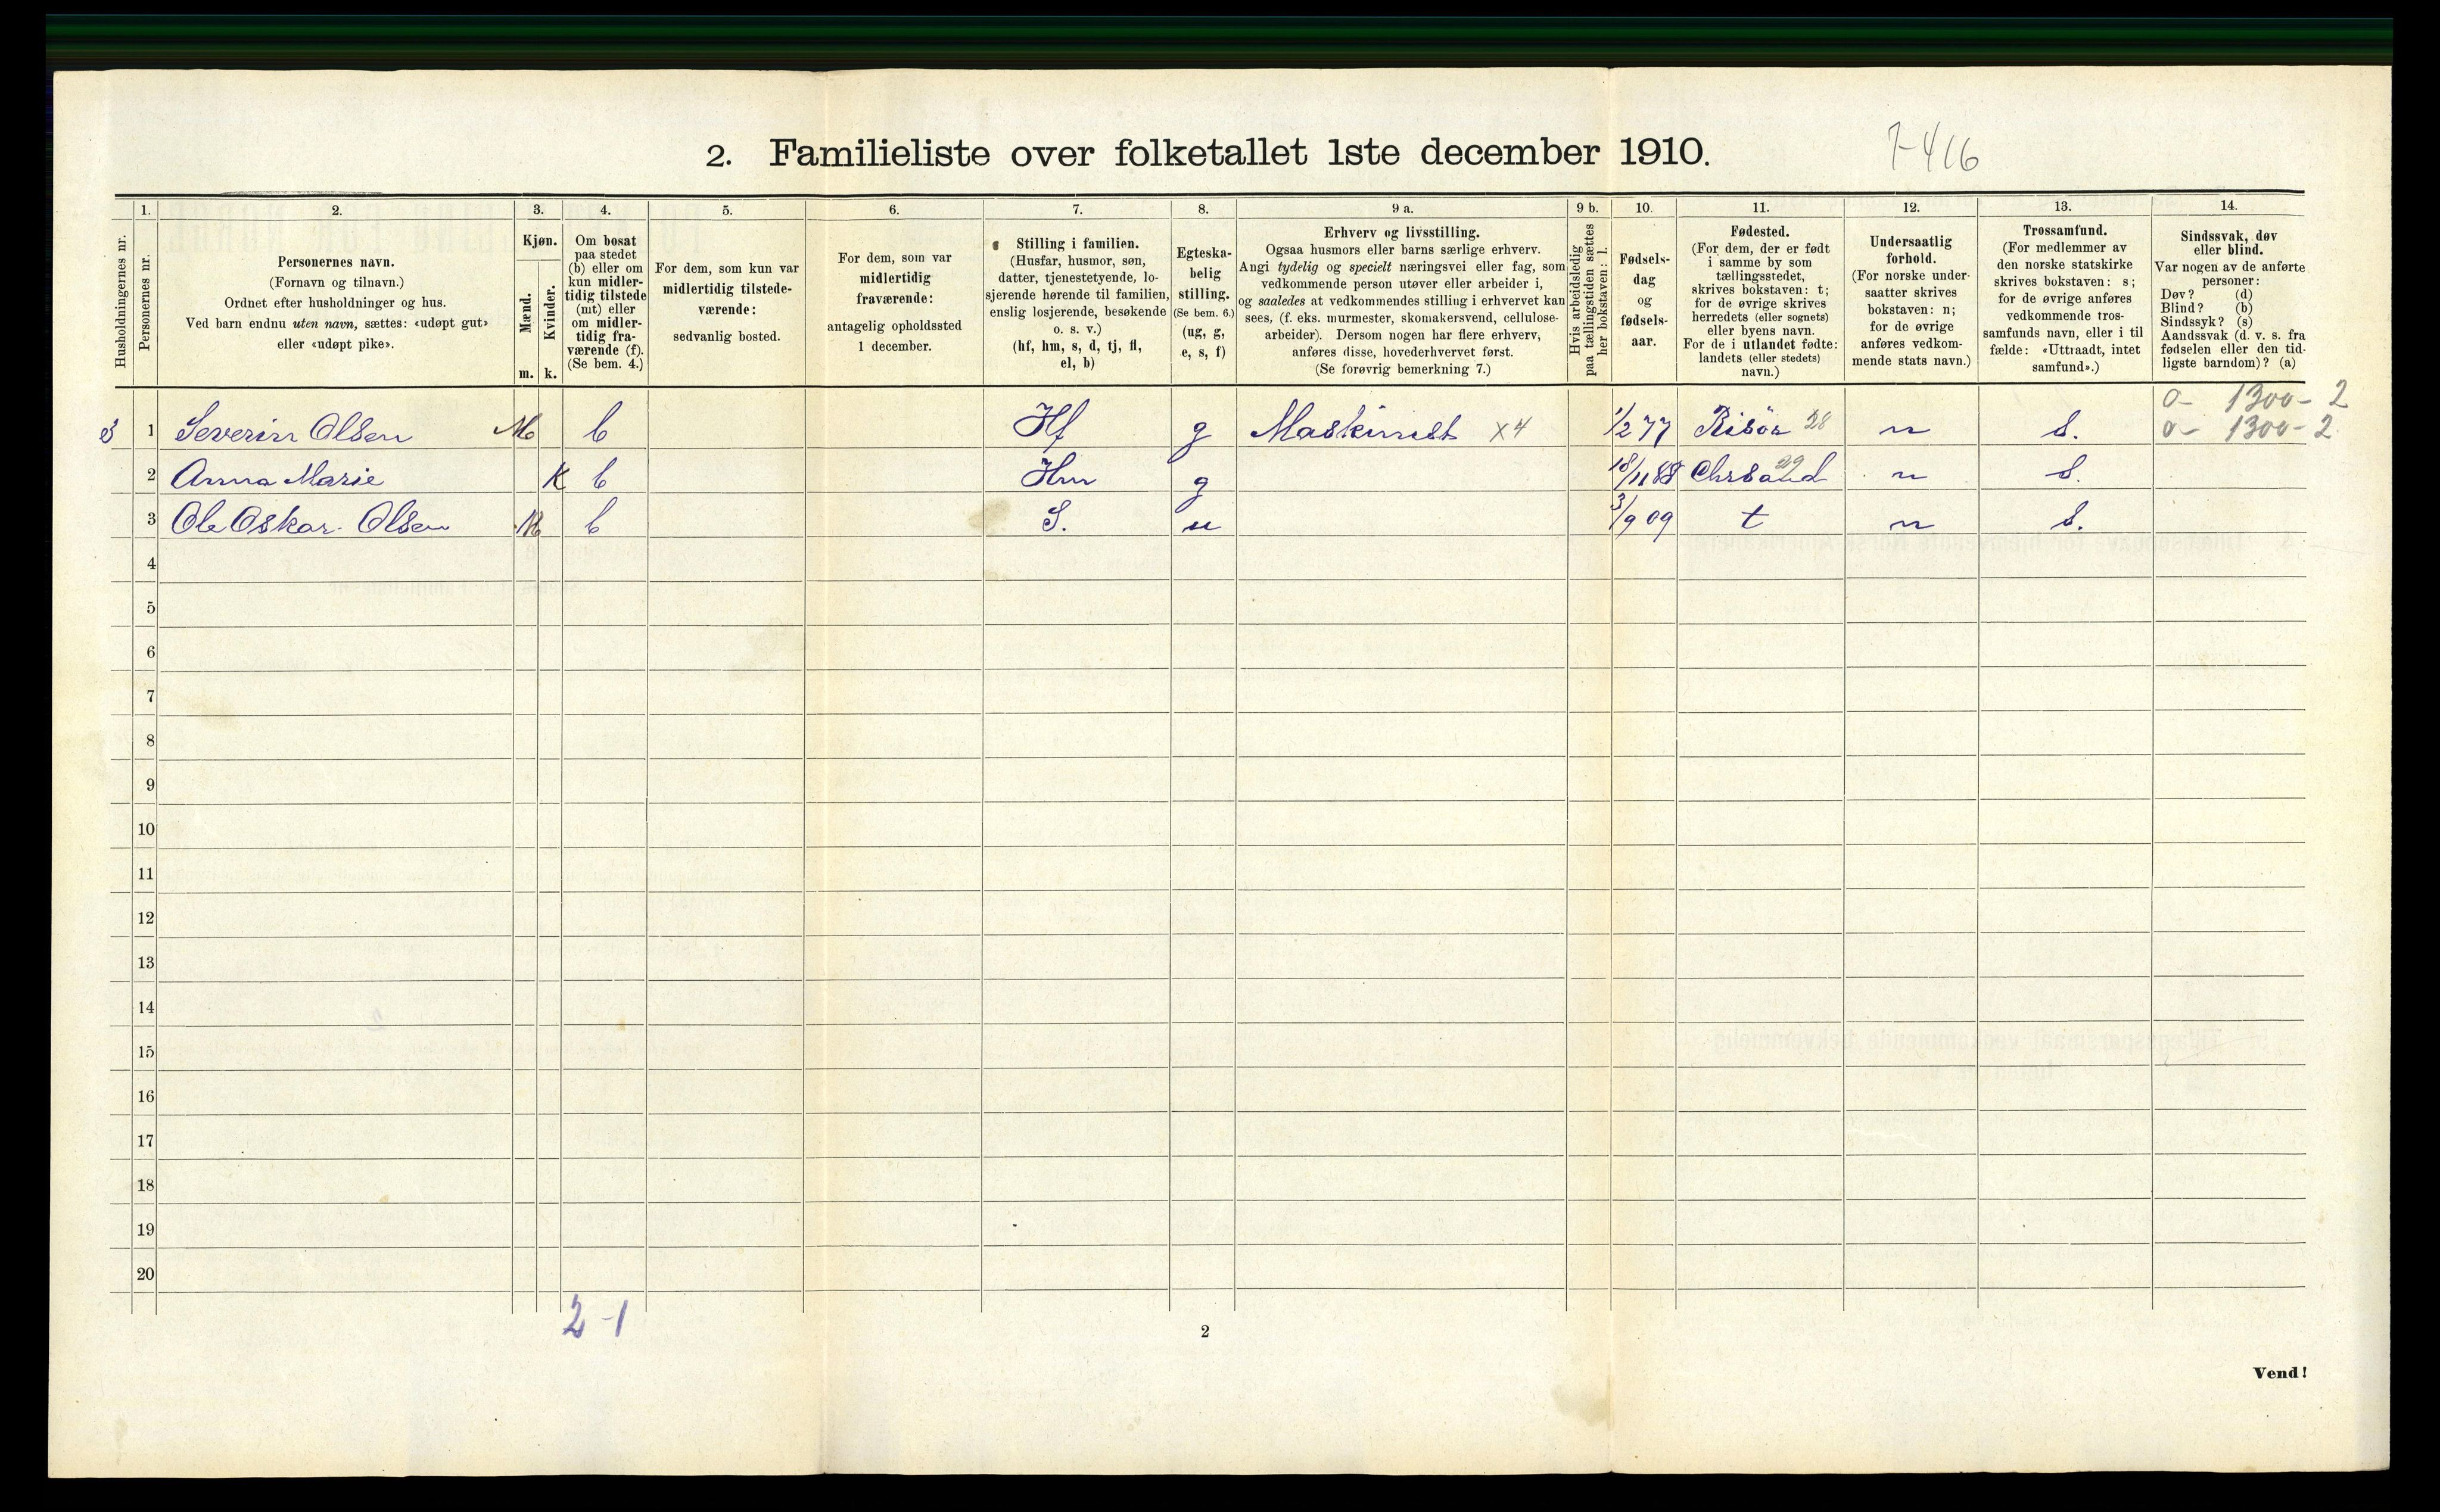 2. Familieliste over folketallet 1ste december 1910.
7-416
Husholdningernes nr.
1.
Personernes nr.
2.
Personernes navn.
(Fornavn og tilnavn.)
Ordnet efter husholdninger og hus.
Ved barn endnu uten navn, sættes: «udøpt gut»
eller «udøpt pike».
3.
Kjøn.
Mænd.
Kvinder.
m. k.
4.
Om bosat
paa stedet
(b) eller om
kun midler-
tidig tilstede
(mt) eller
om midler-
tidig fra-
værende (f).
(Se bem. 4.)
5.
For dem, som kun var
midlertidig tilstede-
værende:
sedvanlig bosted.
6.
For dem, som var
midlertidig
fraværende:
antagelig opholdssted
1 december.
7.
Stilling i familien.
(Husfar, husmor, søn,
datter, tjenestetyende, lo-
sjerende hørende til familien,
enslig losjerende, besøkende
o. s. v.)
(hf, hm, s, d, tj, fl,
el, b)
8.
Egteska-
belig
stilling.
(Se bem. 6.)
(ug, g,
e, s, f)
9 a.
Erhverv og livsstilling.
Ogsaa husmors eller barns særlige erhverv.
Angi tydelig og specielt næringsvei eller fag, som
vedkommende person utøver eller arbeider i,
og saaledes at vedkommendes stilling i erhvervet kan
sees, (f. eks. murmester, skomakersvend, cellulose-
arbeider). Dersom nogen har flere erhverv,
anføres disse, hovederhvervet først.
(Se forøvrig bemerkning 7.)
9 b.
Hvis arbeidsledig
paa tællingstiden sættes
her bokstaven: l.
10.
Fødsels-
dag
og
fødsels-
aar.
11.
Fødested.
(For dem, der er født
i samme by som
tællingsstedet,
skrives bokstaven: t;
for de øvrige skrives
herredets (eller sognets)
eller byens navn.
For de i utlandet fødte:
landets (eller stedets)
navn.)
12.
Undersaatlig
forhold.
(For norske under-
saatter skrives
bokstaven: n;
for de øvrige
anføres vedkom-
mende stats navn.)
13.
Trossamfund.
(For medlemmer av
den norske statskirke
skrives bokstaven: s;
for de øvrige anføres
vedkommende tros-
samfunds navn, eller i til
fælde: «Uttraadt, intet
samfund».)
14.
Sindssvak, døv
eller blind.
Var nogen av de anførte
personer:
Døv? (d)
Blind? (b)
Sindssyk? (s)
Aandssvak (d. v. s. fra
fødselen eller den tid-
ligste barndom)? (a)
0- 1300- 2
3 1 Severin Olsen M b Hf g Maskinist x4 1/2 77 Risör 28 n s. 0- 1300- 2
2 Anna Marie K b Hm g 18/11 88 Chrsand 29 n s.
3 Ole Oskar Olsen M b S. u 3/9 09 t n s.
4
5
6
7
8
9
10
11
12
13
14
15
16
17
18
19
20
2-1
2
Vend!